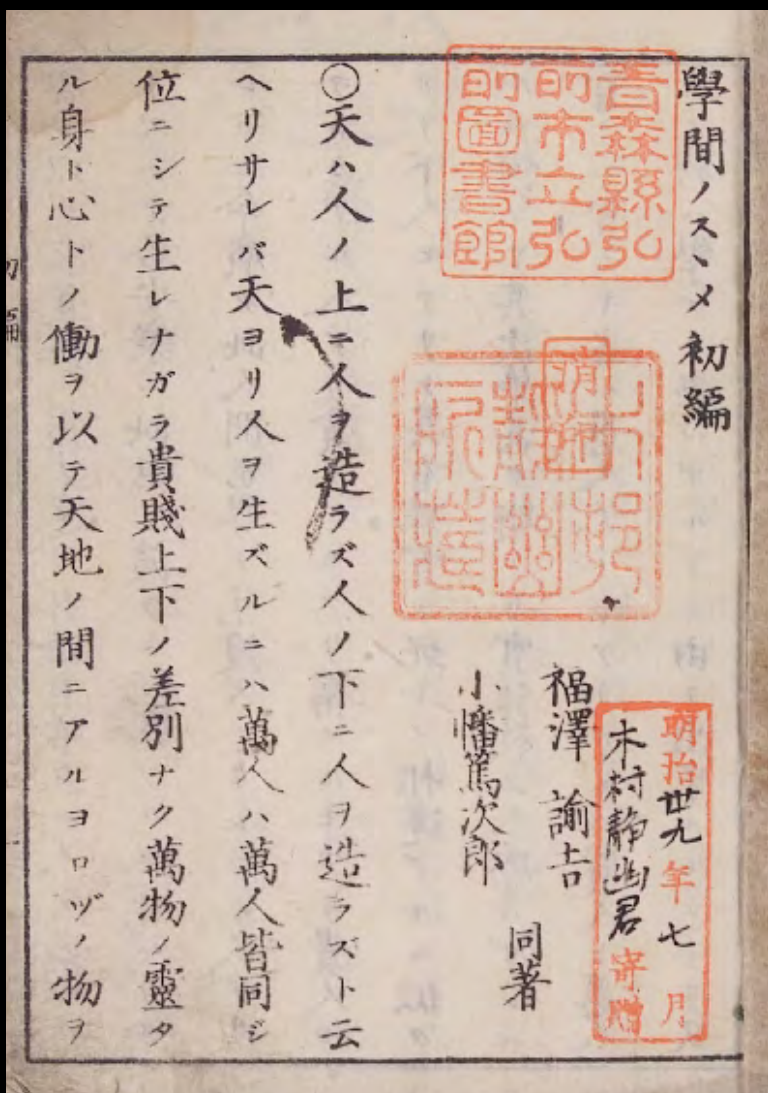 學問ノスヽメ初編
青森縣弘
前市立弘
前圖書館
明治卅九年七月
木村靜幽君
寄贈
福澤諭吉
小幡篤次郎
同著
○天ハ人ノ上ニ人ヲ造ラズ人ノ下ニ人ヲ造ラズト云
ヘリサレバ天ヨリ人ヲ生ズルニハ萬人ハ萬人皆同ジ
位ニシテ生レナガラ貴賤上下ノ差別ナク萬物ノ靈タ
ル身ト心トノ働ヲ以テ天地ノ間ニアルヨロヅノ物ヲ
初編
一